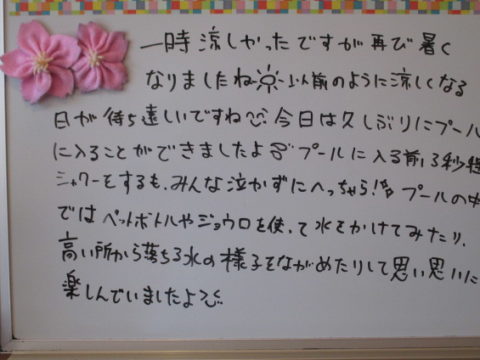 一時涼しかったですが再び暑く
なりましたね 前のように涼しくなる
日が待ち遠しいですね 今日は久しぶりにプール
に入ることができましたよ プールに入る前、3秒程
シャワーをするも、みんな泣かずにへっちゃら! プールの中
ではペットボトルやジョウロを使って水をかけてみたり、
高い所から落ちる水の様子をながめたりして思い思いに
楽しんでいましたよ